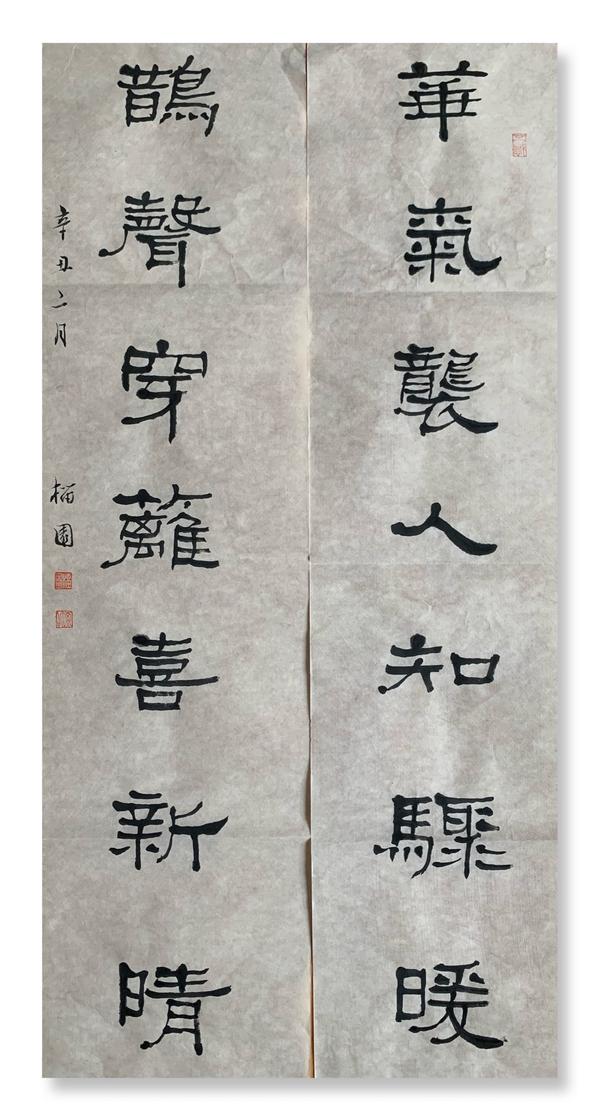 華氣襲人知驟暖
鵲聲穿籬喜新晴
辛丑二月 榴園